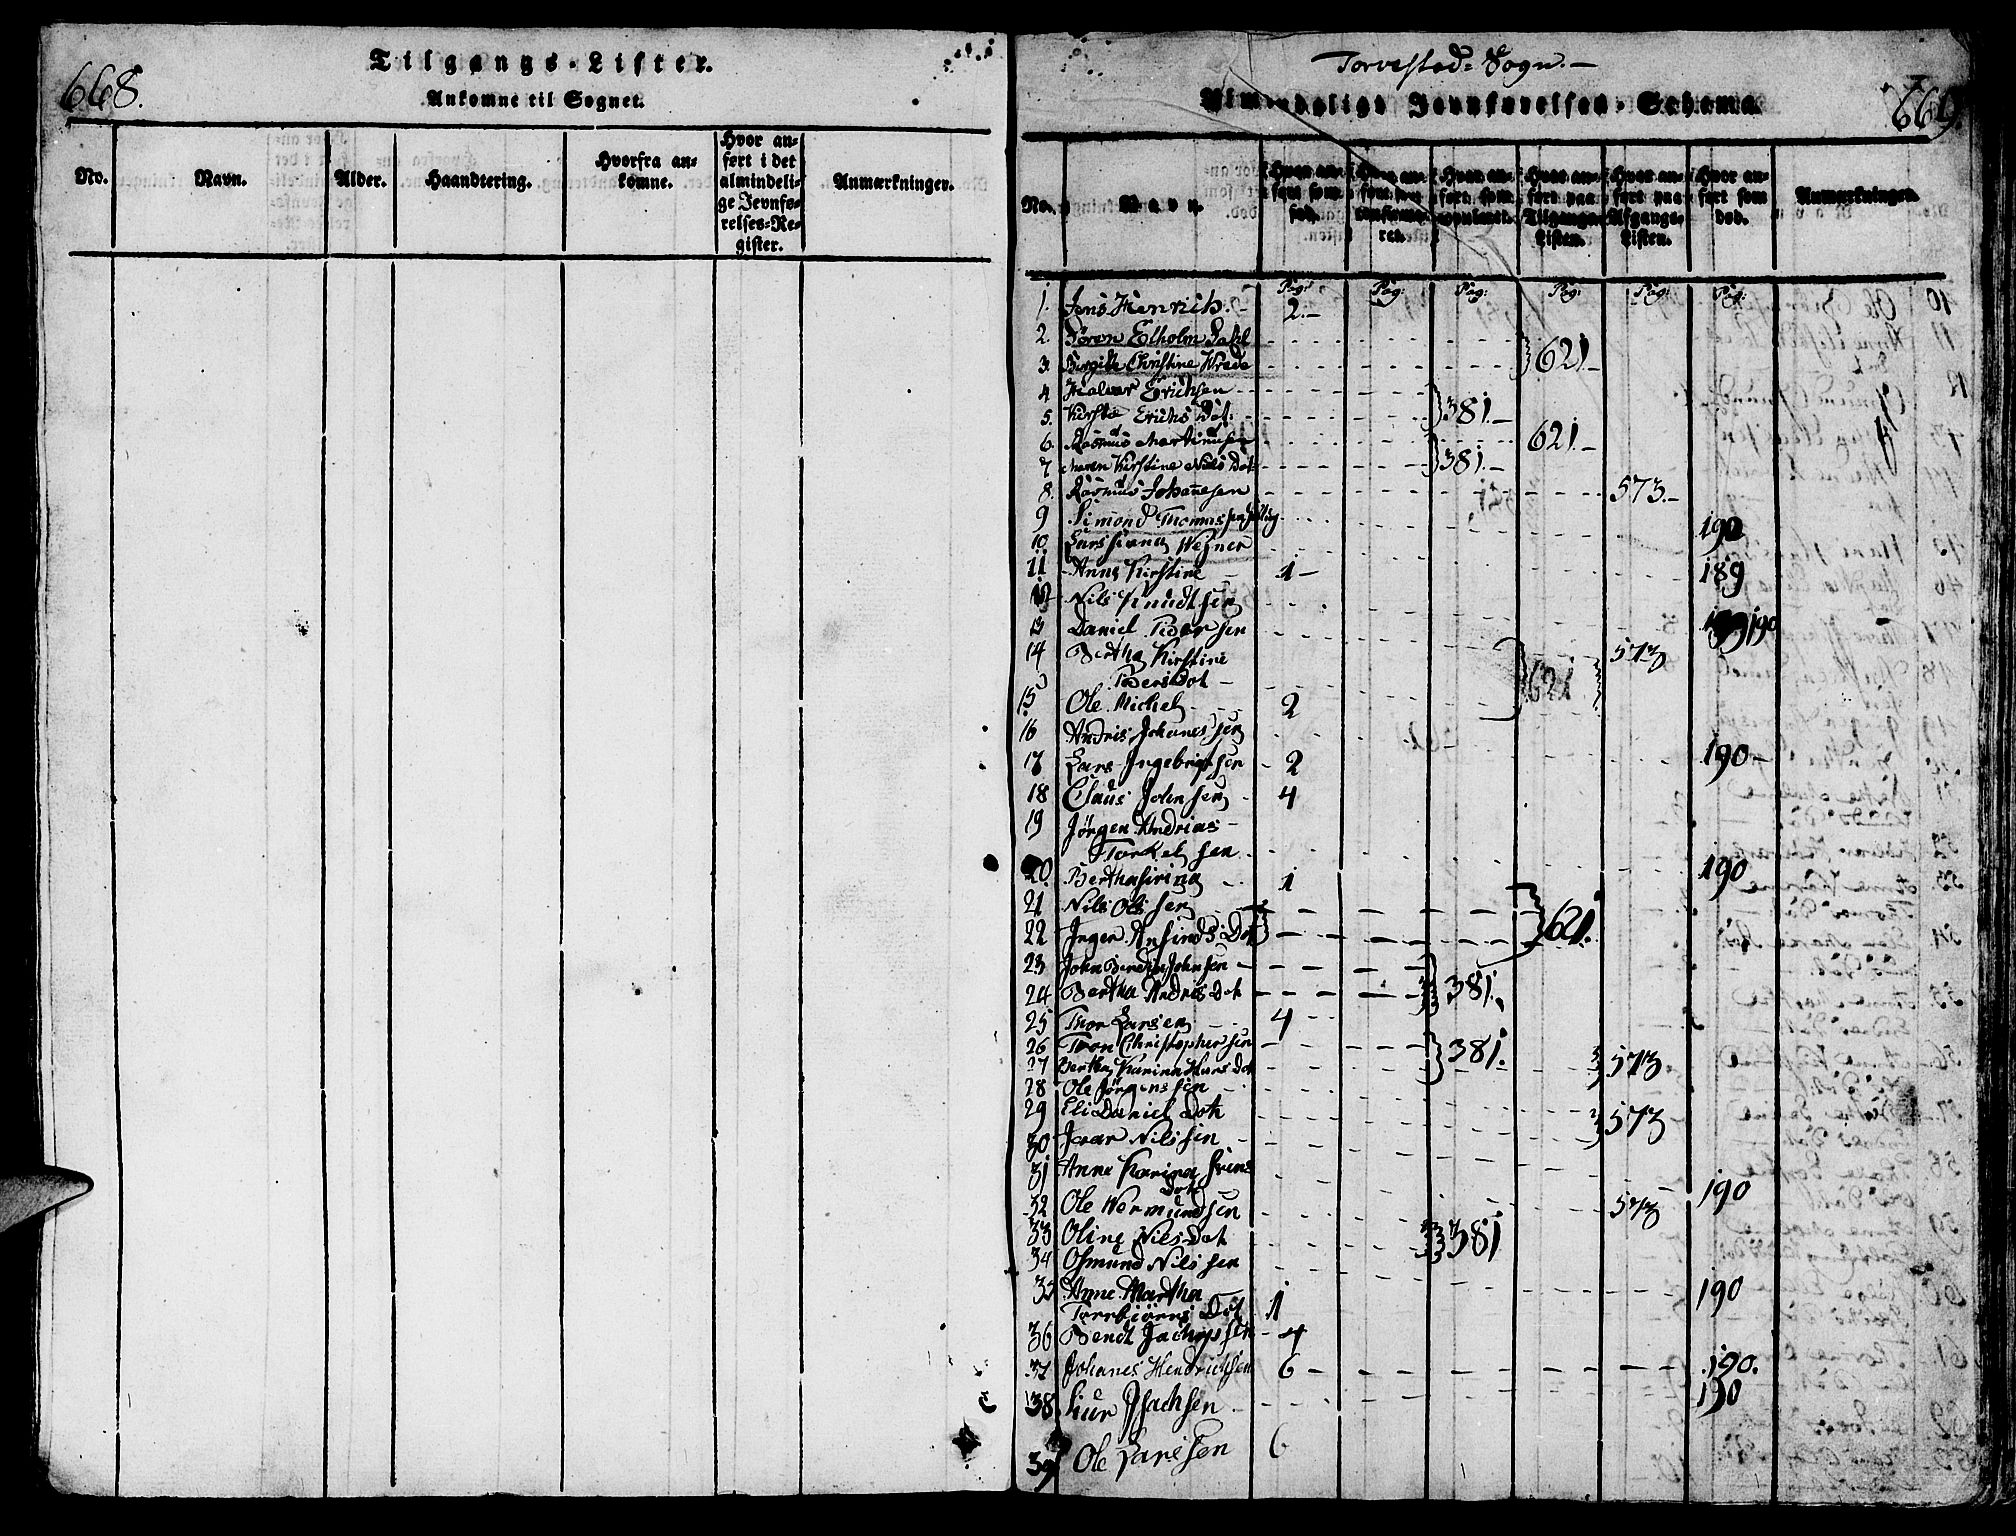 668.
Tilgangs-Lister.
Ankomne til Sognet.
No.
Navn.
Alder.
Haandtering.
Hvorfra an-
komne.
Hvor an-
ført i det
almindeli-
ge Jevnfø-
relses-Re-
gister.
Anmærkninger.
Torvestad-Sogn.-
Almindeligt Jevnførelses-Schema.
669
No.
Navn.
Hvor an-
ført som
fød.
Hvor an-
ført som
confirme-
ret.
Hvor an-
ført som
copuleret.
Hvor an-
ført paa
Tilgangs-
Listen.
Hvor an-
ført paa
Afgangs-
Listen.
Hvor an-
ført som
død.
Anmærkninger.
Pag: Pag: Pag: Pag: Pag: Pag:
1. Jens Henrich. - 2.-
2. Sören Elholm Dahl
3. Birgitte Christine Wrede 621-
4 Halvor Erichsen
5. Kirstie Erichs Dat: 381.-
6. Rasmus Martinusen 621.-
7 Maren Kirstine Niels Dot 381.-
8. Rasmus Johannesen 573.-
9 Simond Thomassen 190
10. Lars Wefner
11 Anne Kirstine 1- 189
12 Nils Knudtsen
13 Daniel Pedersen 190
14 Bertha Kirstine 573
Peders Dot - 621
15 Ole Michel 2
16 Andris Johanessen
17 Lars Ingebrigtsen - 2 190-
18 Claus Johnsen - 4
19 Jörgen Andrias -
Torkelsen
20. Berthasirina 1 190
21 Nils Olsen
22 Inger Dot 621.
23 John Johnsen
24 Bertha Andris Dot 381.
25 Thor Larsen 4
26 Tron Christophersen 381.
27 Bertha Karina Dot 573
28 Ole Jörgenssen
29 Eli Daniel Dotr 573
30 Ivar Nilssen
31 Anne Karina Svens
Dotr 190
32 Ole Wermundsen 573
33 Oline Nils Dot 381
34 Osmund Nilssen
35 Anne Martha 190
Torrbiörns Dot 1
36 Bendt - 4
37 Johanes Hendrichsen 6 - 190.
38 Isachsen 190
39 Ole Larssen 6